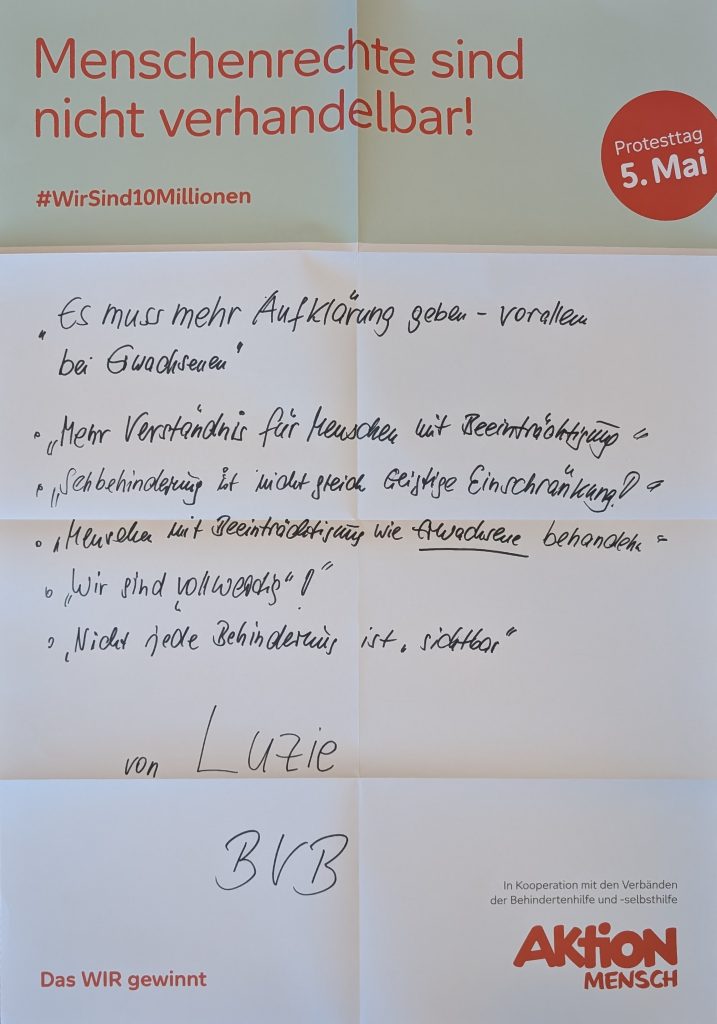 Menschenrechte sind
nicht verhandelbar!
Protesttag
5. Mai
#WirSind10Millionen
„Es muss mehr Aufklärung geben - vorallem
bei Erwachsenen"
• „Mehr Verständnis für Menschen mit Beeinträchtigung"
• „Sehbehinderung ist nicht gleich Geistige Einschränkung!"
• „Menschen mit Beeinträchtigung wie Erwachsene behandeln"
• „Wir sind „vollwertig"!"
• „Nicht jede Behinderung ist „sichtbar"
von Luzie
BVB
In Kooperation mit den Verbänden
der Behindertenhilfe und -selbsthilfe
AKTION
MENSCH
Das WIR gewinnt